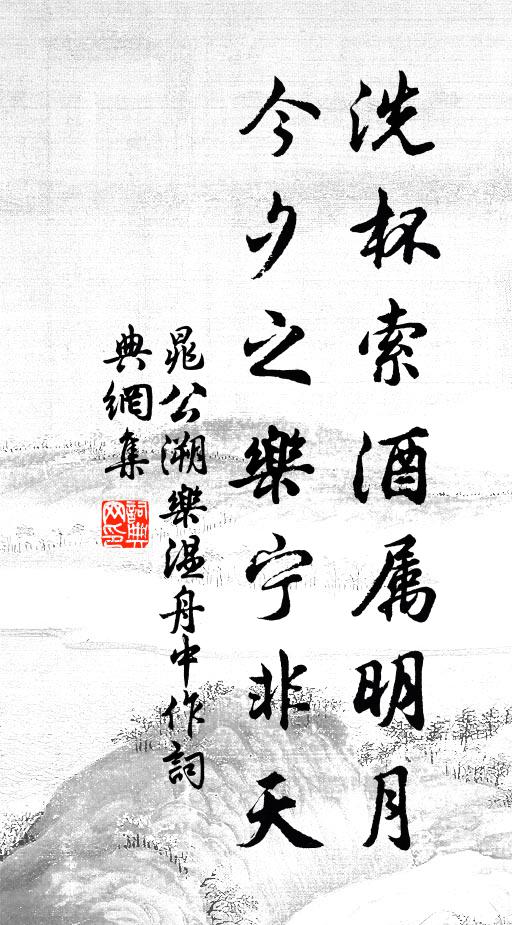 洗杯索酒属明月
今夕之樂宁非天
晁公溯樂温舟中作詞
典網集
詞典
网印